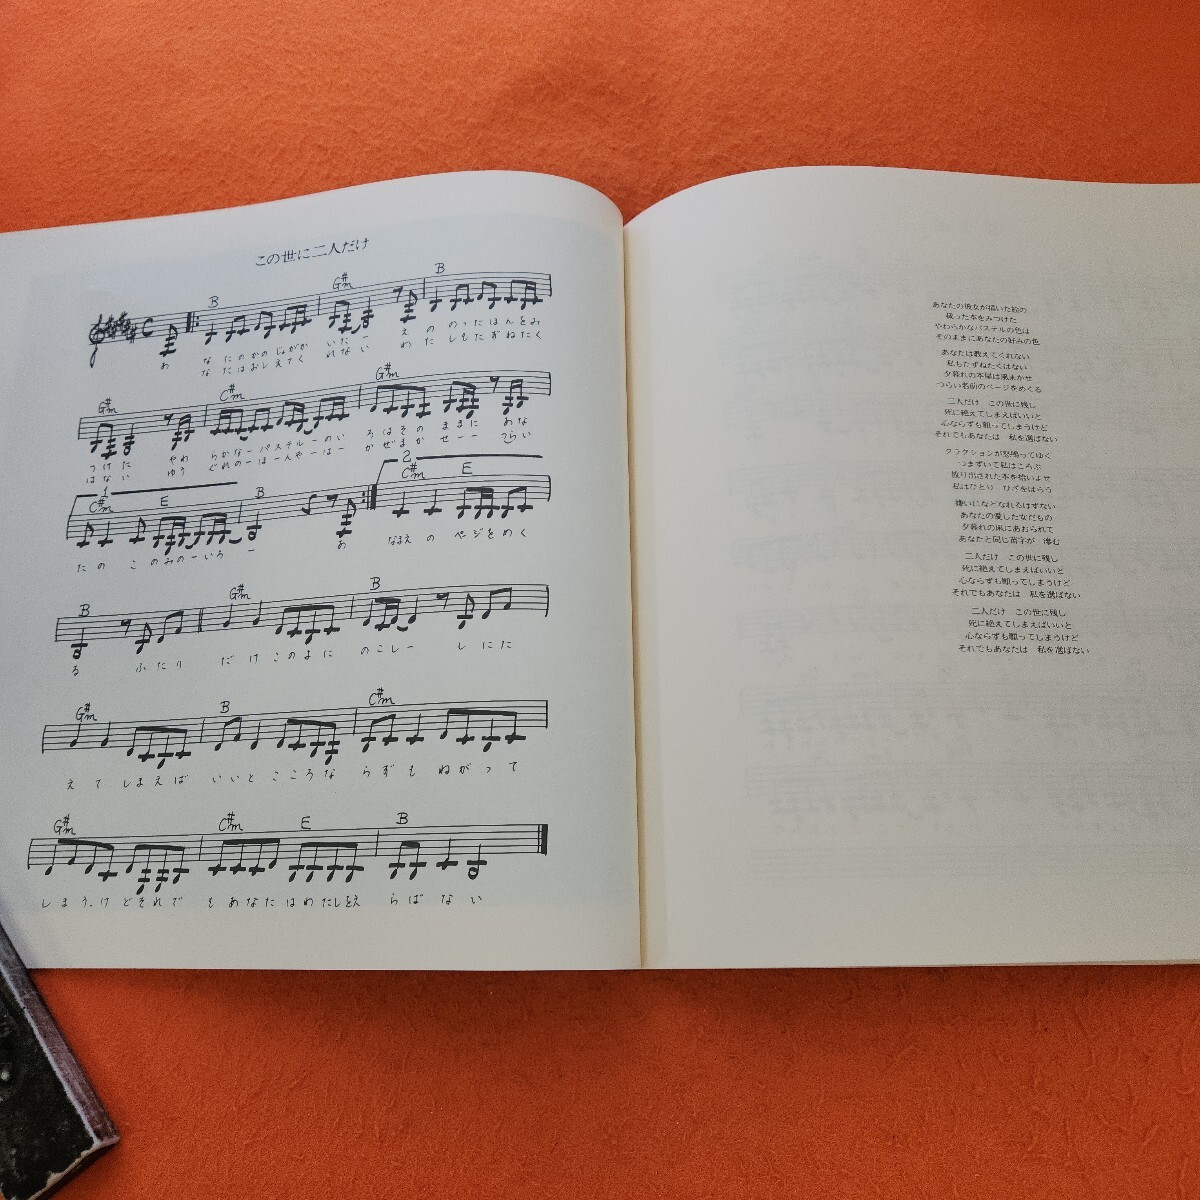 この世に二人だけ
B G#m B
あ なたのかのじょがか いたー え の のったほんをみ
なたはおしえてく れない わ たしもたずねたく
G#m C#m G#m
つけた やわ らかなーパステルーのい ろはその ままに あな
はない ゆう ぐれのーほーんやーはー かぜまか せーー つらい
1 2
C#m E B C#m E
たの このみのーいろ ー あ なまえ の ページをめく
B G#m B
る ふたり だけこのよに のこしー しにた
G#m B C#m
えてしまえば いいと こころな らずも ねがって
G#m C#m E B
しまうけ どそれで もあなた はわたしをえ らばない
あなたの彼女が描いた絵の
載った本をみつけた
やわらかなパステルの色は
そのままにあなたの好みの色
あなたは教えてくれない
私もたずねたくはない
夕暮れの本屋は風まかせ
つらい名前のページをめくる
二人だけ この世に残し
死に絶えてしまえばいいと
心ならずも願ってしまうけど
それでもあなたは 私を選ばない
クラクションが怒鳴ってゆく
つまずいて私はころぶ
放り出された本を拾いよせ
私はひとり ひざをはらう
嫌いになどなれるはずない
あなたの愛した女だもの
夕暮れの風にあおられて
あなたと同じ苗字が 滲む
二人だけ この世に残し
死に絶えてしまえばいいと
心ならずも願ってしまうけど
それでもあなたは 私を選ばない
二人だけ この世に残し
死に絶えてしまえばいいと
心ならずも願ってしまうけど
それでもあなたは 私を選ばない